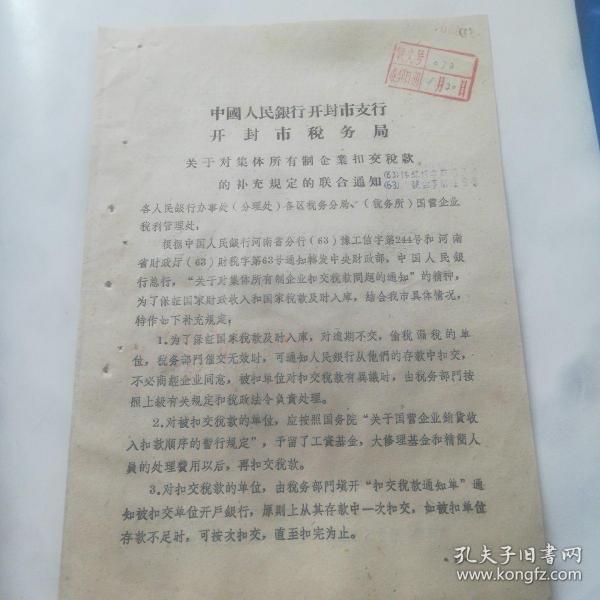 收文号 073
月20日
中國人民銀行开封市支行
开封市稅务局
关于对集体所有制企業扣交稅款
的补充規定的联合通知
(63)
(63)
各人民銀行办事处(分理处)各区稅务分局、(稅务所)国营企业
稅利管理处:
根据中国人民銀行河南省分行(63)豫工信字第244号和河南
省財政厅(63)財稅字第63号通知轉发中央財政部,中国人民銀
行总行,“关于对集体所有制企业扣交稅款問題的通知”的精神,
为了保証国家財政收入和国家稅款及时入庫,結合我市具体情况,
特作如下补充規定:
1.为了保証国家稅款及时入庫,对逾期不交,偷稅漏稅的单
位,稅务部門催交无效时,可通知人民銀行从他們的存款中扣交,
不必商經企业同意,被扣单位对扣交稅款有異議时,由稅务部門按
照上級有关規定和稅政法令負責处理。
2.对被扣交稅款的单位,应按照国务院“关于国营企业銷貨收
入扣款順序的暫行規定”,予留了工資基金,大修理基金和精簡人
員的处理費用以后,再扣交稅款。
3.对扣交稅款的单位,由稅务部門填开“扣交稅款通知单”通
知被扣交单位开戶銀行,原則上从其存款中一次扣交,如被扣单位
存款不足时,可按次扣交,直至扣完为止。
孔夫子旧書网
www.kongfz.com